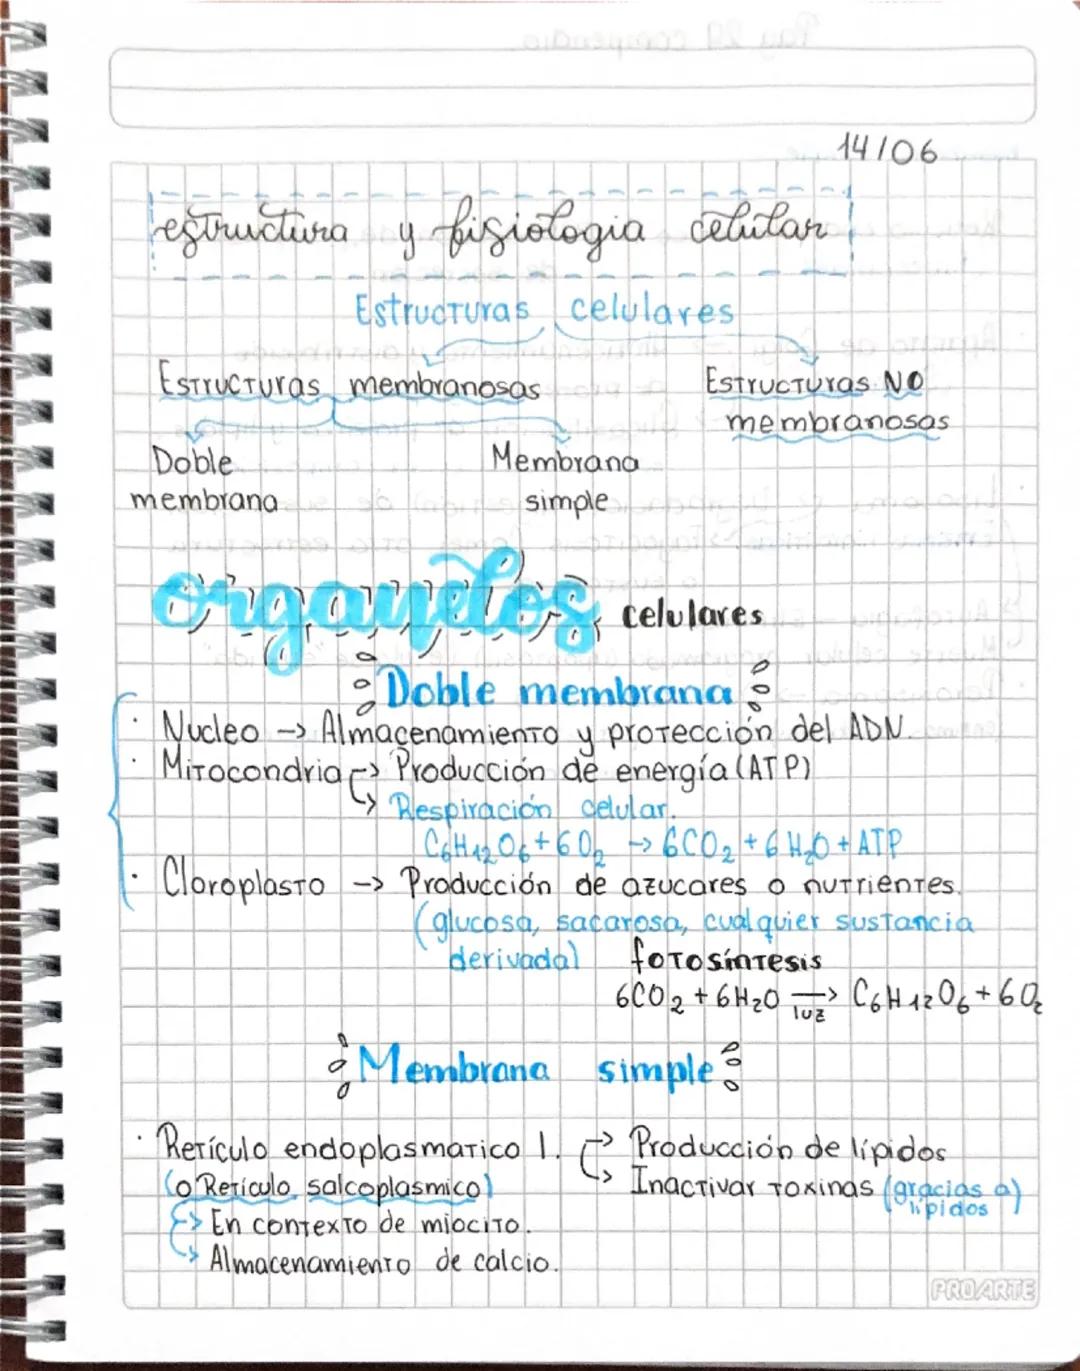 14/06
estructura y fisiologia celular
Estructuras celulares
Estructuras membranosas
Estructuras NO
membranosas
Doble
membrana
Membrana
simple
organelos celulares
Doble membrana
· Nucleo -> Almacenamiento y protección del ADN.
· Mitocondria -> Producción de energía (ATP)
-> Respiración celular.
C6H12O6 + 6O2 -> 6CO2 + 6H2O + ATP
· Cloroplasto -> Producción de azucares o nutrientes.
(glucosa, sacarosa, cualquier sustancia
derivada) fotosíntesis
6CO2 + 6H2O -> C6H12O6 + 6O2
luz
Membrana simple
· Retículo endoplasmatico l. -> Producción de lípidos
(o Retículo salcoplasmico) -> Inactivar toxinas (gracias a)
lípidos
-> En contexto de miocito.
-> Almacenamiento de calcio.
PROARTE